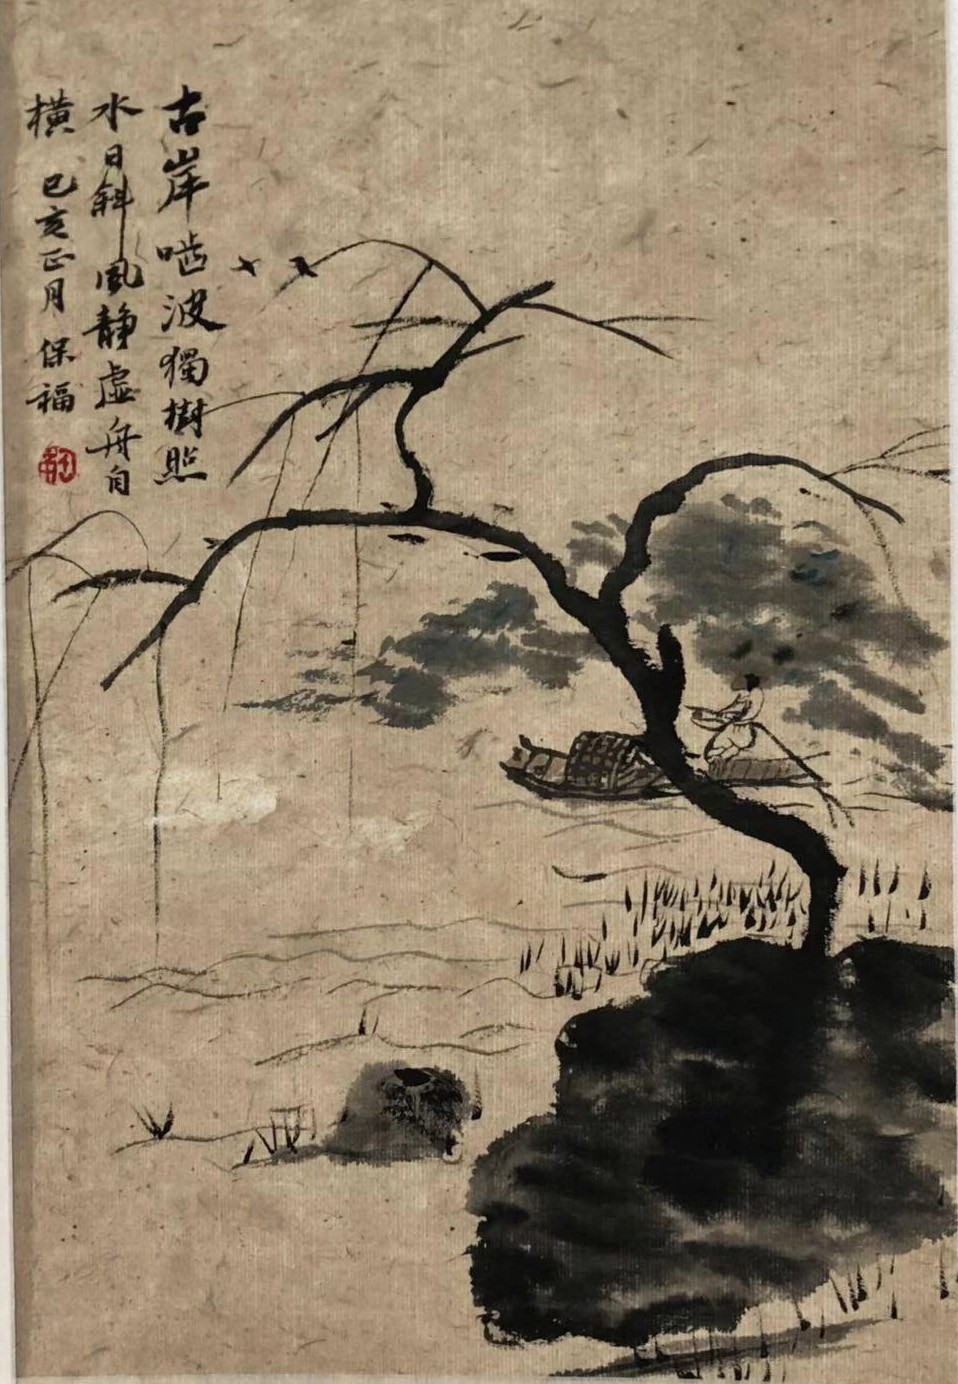 古岸啮波獨樹照
水日斜風静虛舟自
橫 己亥正月 保福